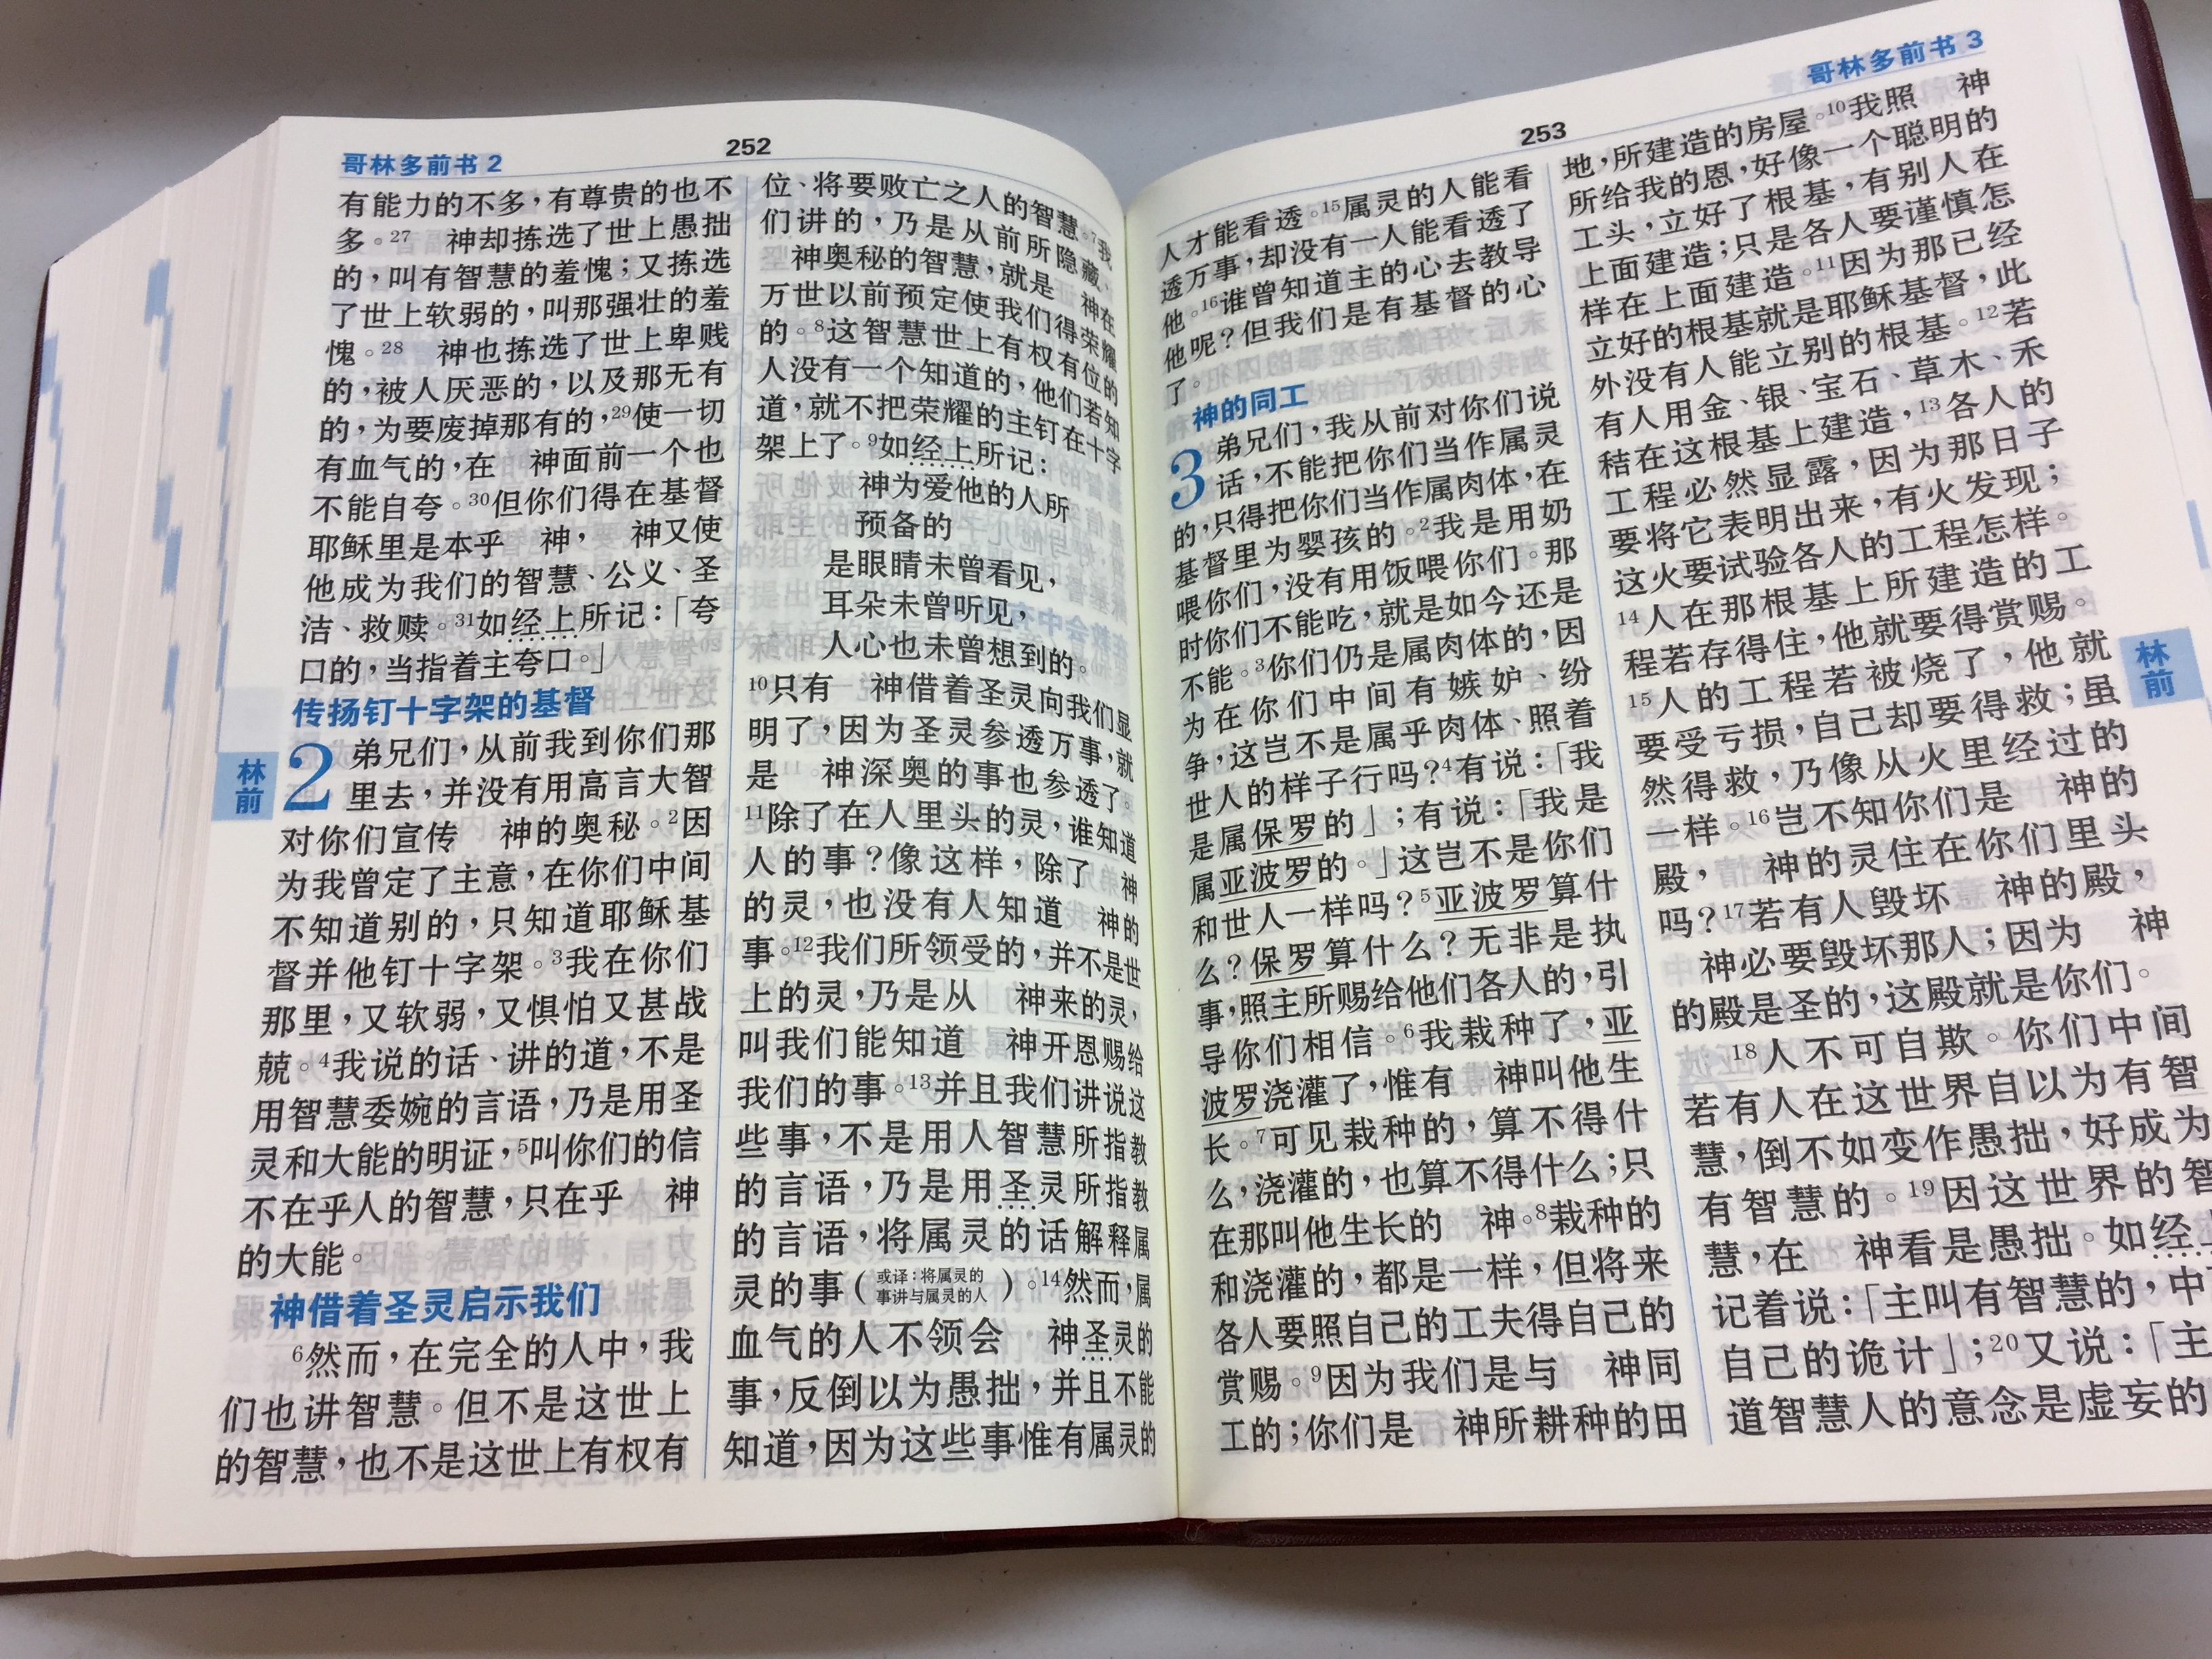 哥林多前书 2
252
有能力的不多，有尊贵的也不
多。27　神却拣选了世上愚拙
的，叫有智慧的羞愧；又拣选
了世上软弱的，叫那强壮的羞
愧。28　神也拣选了世上卑贱
的，被人厌恶的，以及那无有
的，为要废掉那有的，29使一切
有血气的，在　神面前一个也
不能自夸。30但你们得在基督
耶稣里是本乎　神，　神又使
他成为我们的智慧、公义、圣
洁、救赎。31如经上所记：「夸
口的，当指着主夸口。」
传扬钉十字架的基督
林前
2 弟兄们，从前我到你们那
里去，并没有用高言大智
对你们宣传　神的奥秘。2因
为我曾定了主意，在你们中间
不知道别的，只知道耶稣基
督并他钉十字架。3我在你们
那里，又软弱，又惧怕又甚战
兢。4我说的话、讲的道，不是
用智慧委婉的言语，乃是用圣
灵和大能的明证，5叫你们的信
不在乎人的智慧，只在乎　神
的大能。
神借着圣灵启示我们
6然而，在完全的人中，我
们也讲智慧。但不是这世上
的智慧，也不是这世上有权有
位、将要败亡之人的智慧。7我
们讲的，乃是从前所隐藏、
神奥秘的智慧，就是　神在
万世以前预定使我们得荣耀
的。8这智慧世上有权有位的
人没有一个知道的，他们若知
道，就不把荣耀的主钉在十字
架上了。9如经上所记：
神为爱他的人所
预备的
是眼睛未曾看见，
耳朵未曾听见，
人心也未曾想到的。
10只有　神借着圣灵向我们显
明了，因为圣灵参透万事，就
是　神深奥的事也参透了。
11除了在人里头的灵，谁知道
人的事？像这样，除了　神
的灵，也没有人知道　神的
事。12我们所领受的，并不是世
上的灵，乃是从　神来的灵，
叫我们能知道　神开恩赐给
我们的事。13并且我们讲说这
些事，不是用人智慧所指教
的言语，乃是用圣灵所指教
的言语，将属灵的话解释属
灵的事（或译：将属灵的事讲与属灵的人）。14然而，属
血气的人不领会　神圣灵的
事，反倒以为愚拙，并且不能
知道，因为这些事惟有属灵的
253
哥林多前书 3
人才能看透。15属灵的人能看
透万事，却没有一人能看透了
他。16谁曾知道主的心去教导
他呢？但我们是有基督的心
了。
神的同工
3 弟兄们，我从前对你们说
话，不能把你们当作属灵
的，只得把你们当作属肉体，在
基督里为婴孩的。2我是用奶
喂你们，没有用饭喂你们。那
时你们不能吃，就是如今还是
不能。3你们仍是属肉体的，因
为在你们中间有嫉妒、纷
争，这岂不是属乎肉体、照着
世人的样子行吗？4有说：「我
是属保罗的」；有说：「我是
属亚波罗的。」这岂不是你们
和世人一样吗？5亚波罗算什
么？保罗算什么？无非是执
事，照主所赐给他们各人的，引
导你们相信。6我栽种了，亚
波罗浇灌了，惟有　神叫他生
长。7可见栽种的，算不得什
么，浇灌的，也算不得什么；只
在那叫他生长的　神。8栽种的
和浇灌的，都是一样，但将来
各人要照自己的工夫得自己的
赏赐。9因为我们是与　神同
工的；你们是　神所耕种的田
地，所建造的房屋。10我照　神
所给我的恩，好像一个聪明的
工头，立好了根基，有别人在
上面建造；只是各人要谨慎怎
样在上面建造。11因为那已经
立好的根基就是耶稣基督，此
外没有人能立别的根基。12若
有人用金、银、宝石、草木、禾
秸在这根基上建造，13各人的
工程必然显露，因为那日子
要将它表明出来，有火发现；
这火要试验各人的工程怎样。
14人在那根基上所建造的工
程若存得住，他就要得赏赐。
15人的工程若被烧了，他就
要受亏损，自己却要得救；虽
然得救，乃像从火里经过的
一样。16岂不知你们是　神的
殿，　神的灵住在你们里头
吗？17若有人毁坏　神的殿，
神必要毁坏那人；因为　神
的殿是圣的，这殿就是你们。
18人不可自欺。你们中间
若有人在这世界自以为有智
慧，倒不如变作愚拙，好成为
有智慧的。19因这世界的智
慧，在　神看是愚拙。如经上
记着说：「主叫有智慧的，中
自己的诡计」；20又说：「主
道智慧人的意念是虚妄的
林前